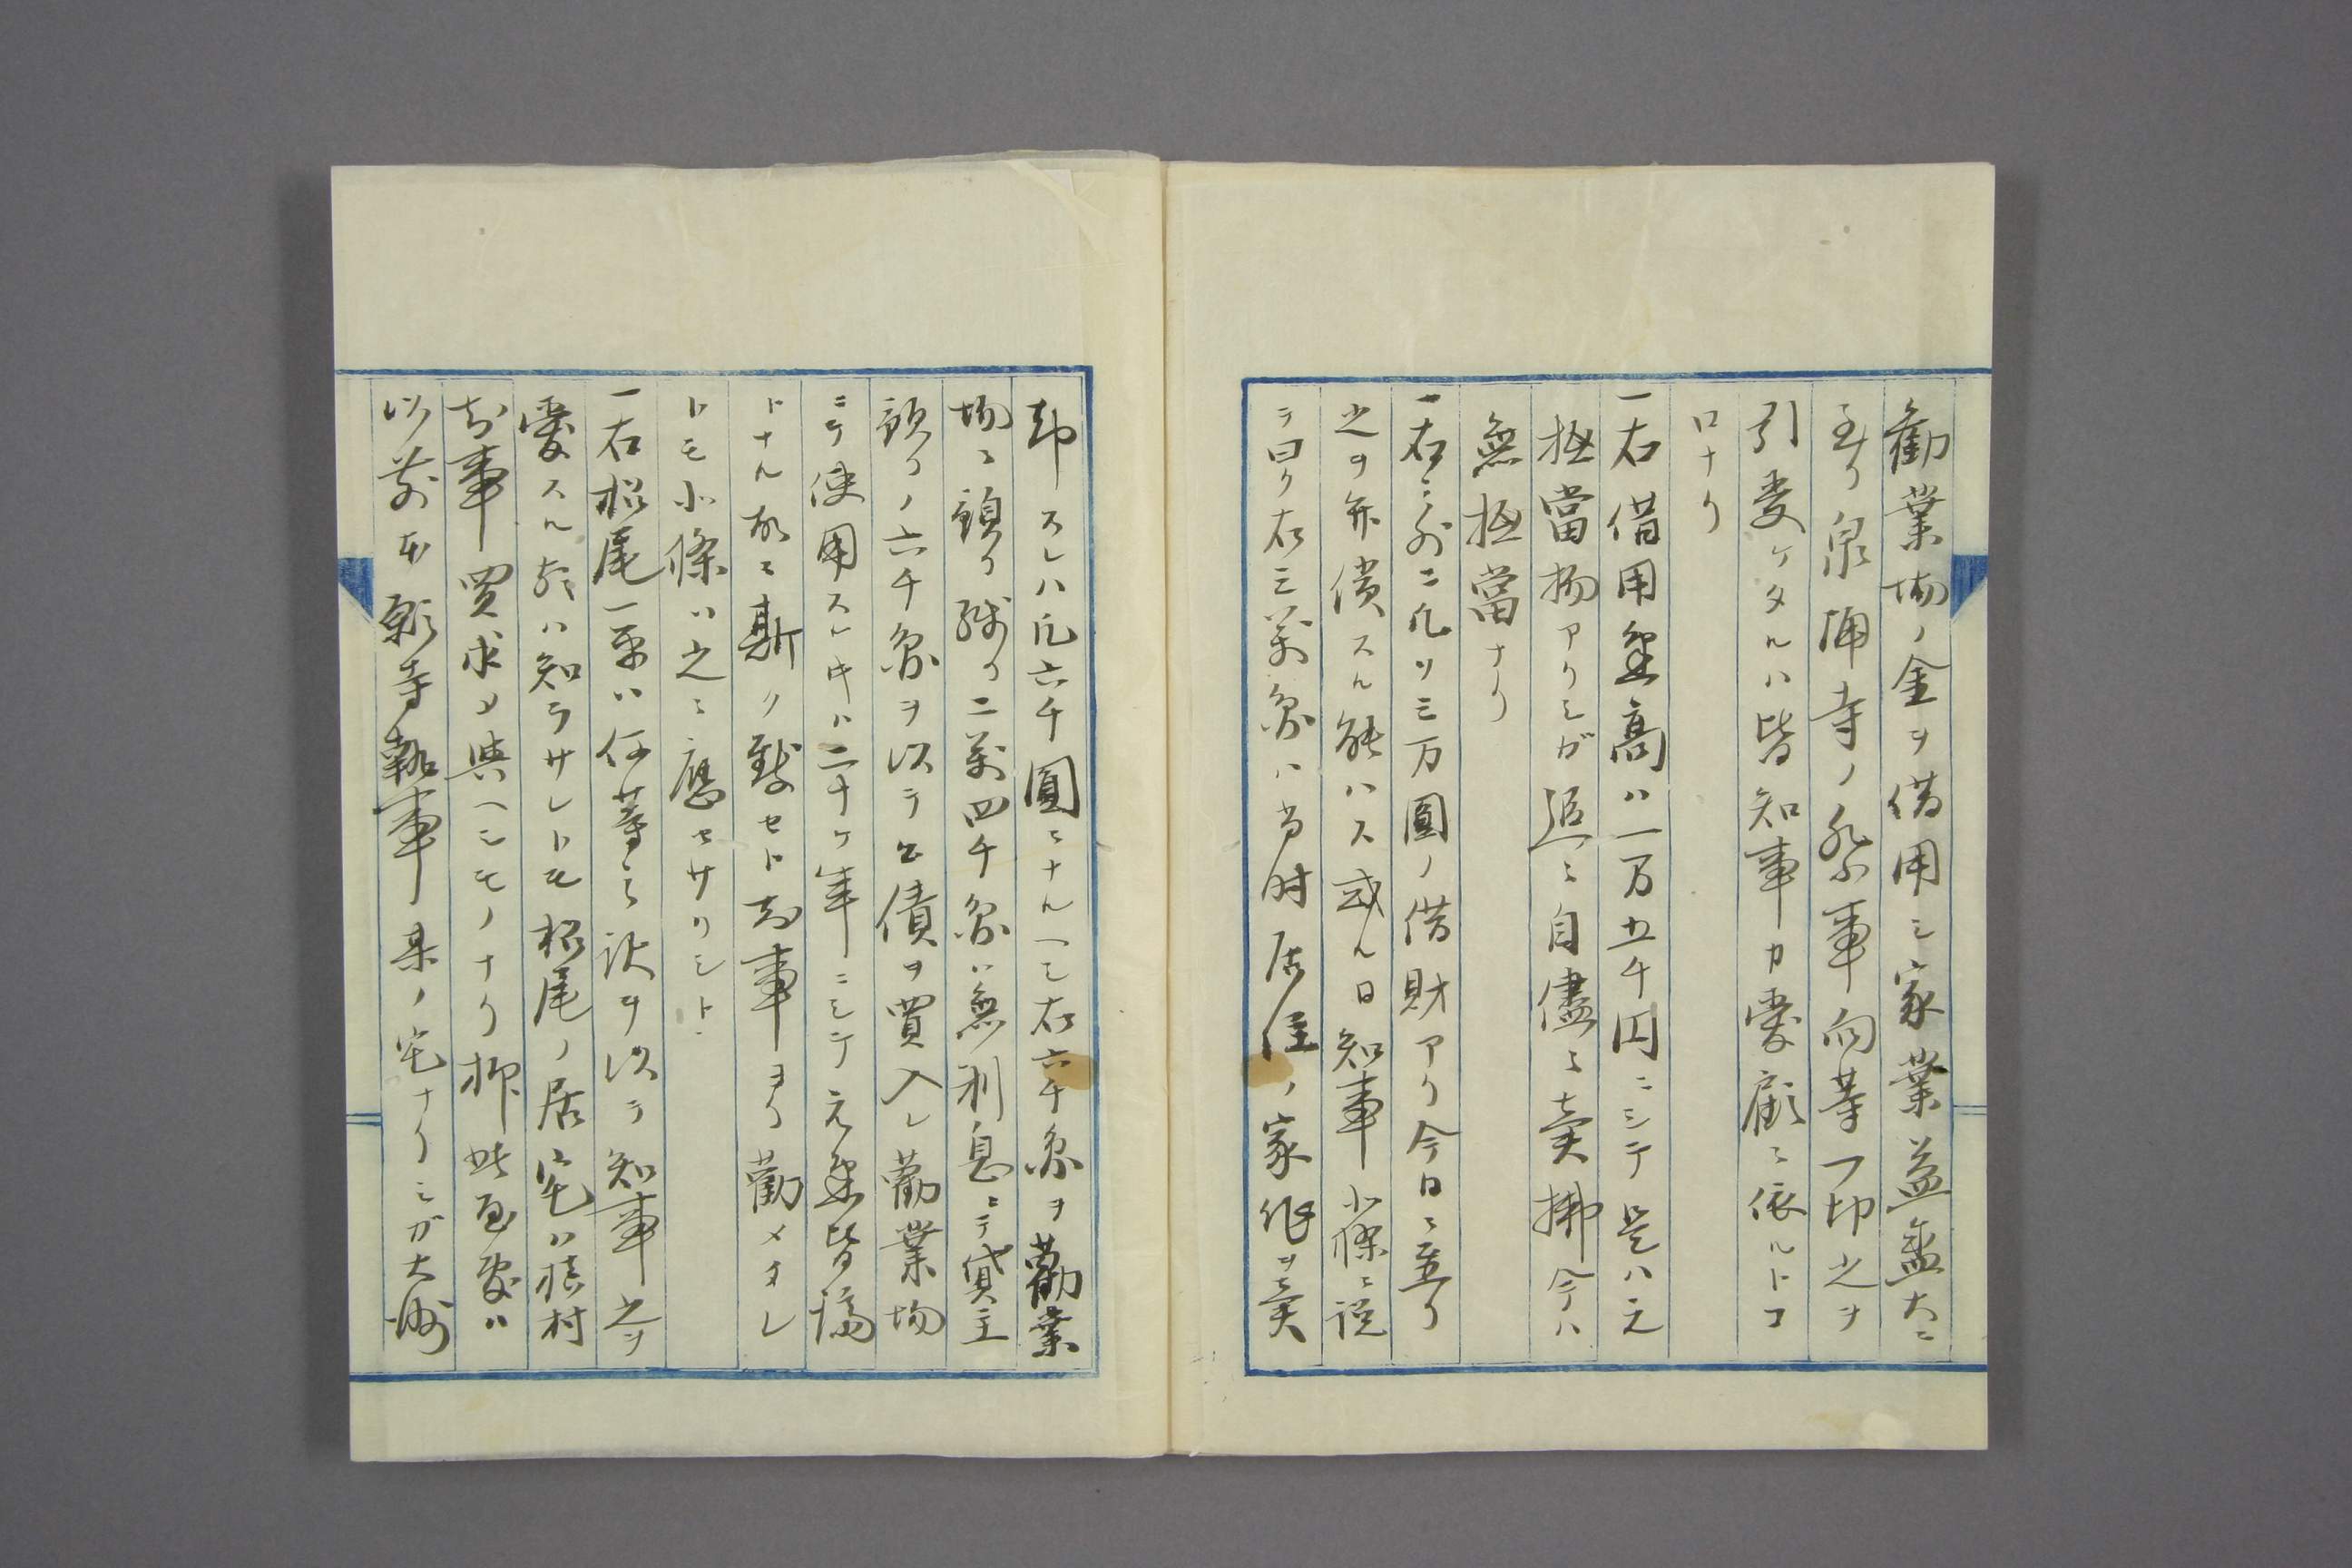 勧業場ノ金ヲ借用シ家業益盛大ニ
至リ泉涌寺ノ祭事向等一切之ヲ
引受ケタルハ皆知事カ愛顧ニ依ルトコ
ロナリ
一右借用金高ハ一万五千円ニシテ是ハ元
抵當物アリシガ追々自儘ニ賣拂今ハ
無抵當ナリ
一右之外ニ凡ソ三万圓ノ借財アリ今日ニ至リ
之ヲ弁償スル能ハス或ル日知事小篠ニ説
テ曰ク右三萬円ハ当時居住ノ家作ヲ賣
却スレハ凡六千圓ニナルヘシ右六千円ヲ勧業
場ニ預ケ残リ二萬四千円ハ無利息ニテ貸主
預リノ六千円ヲ以テ公債ヲ買入レ勧業場
ニテ使用スレ廾ハ二十ケ年ニシテ元金皆済
トナル故ニ斯ク致セト知事ヨリ勧メタレ
トモ小篠ハ之ニ應セサリシト
一右松尾一条ハ何等之訳ヲ以テ知事之ヲ
愛スル歟ハ知ラサレトモ松尾ノ居宅ハ槇村
知事買求メ與ヘシモノナリ抑此家屋ハ
以前本願寺執事某ノ宅ナリシガ大洲